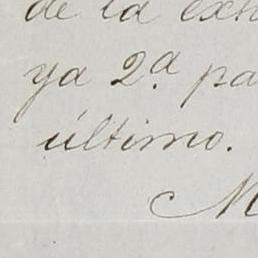 de la exh
ya 2.ª pa
último.
M